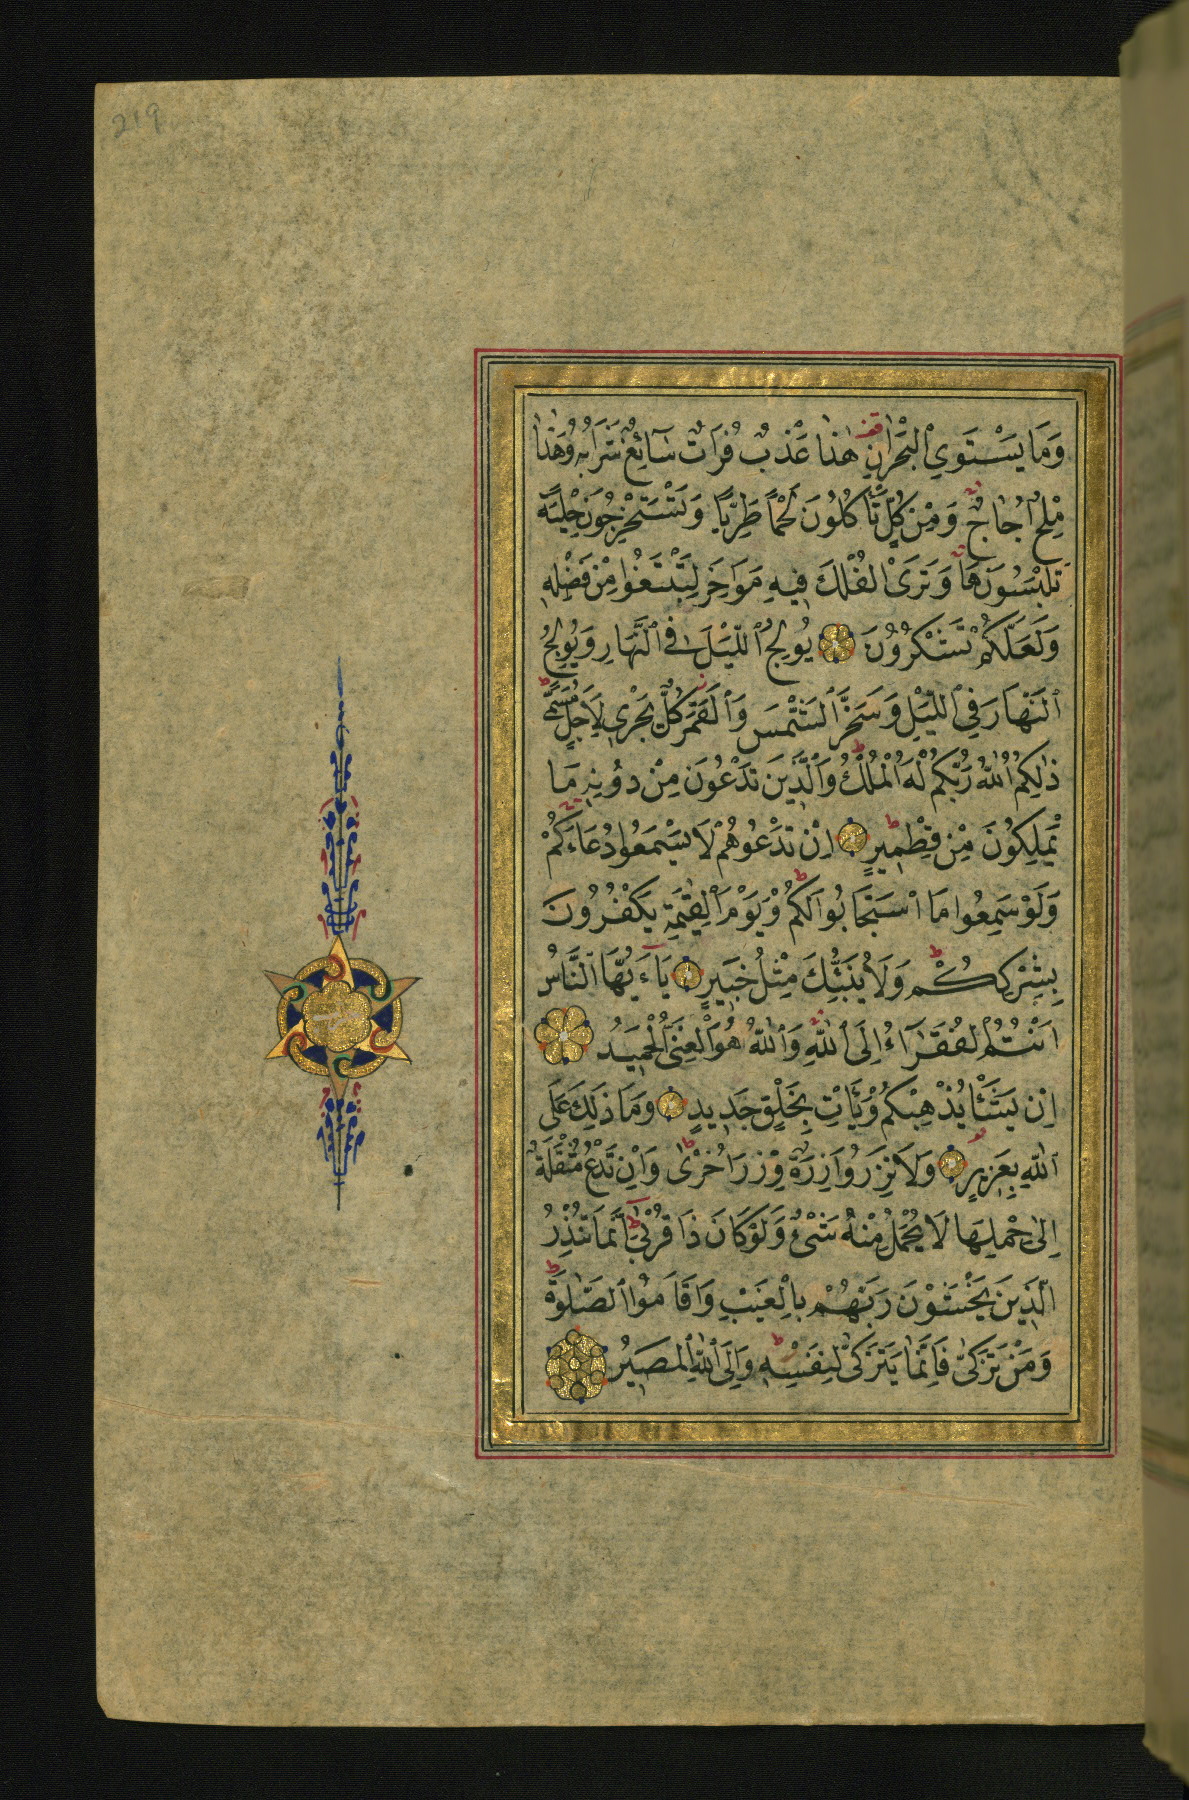 219
وَمَا يَسْتَوِي الْبَحْرَانِ هٰذَا عَذْبٌ فُرَاتٌ سَآئِغٌ شَرَابُهُ وَهٰذَا
مِلْحٌ اُجَاجٌ وَمِنْ كُلٍّ تَأْكُلُونَ لَحْماً طَرِيًّا وَتَسْتَخْرِجُونَ حِلْيَةً
تَلْبَسُونَهَا وَتَرَى الْفُلْكَ فِيهِ مَوَاخِرَ لِتَبْتَغُوا مِنْ فَضْلِهِ
وَلَعَلَّكُمْ تَشْكُرُونَ يُولِجُ اللَّيْلَ فِي النَّهَارِ وَيُولِجُ
النَّهَارَ فِي اللَّيْلِ وَسَخَّرَ الشَّمْسَ وَالْقَمَرَ كُلٌّ يَجْرِي لِاَجَلٍ مُسَمًّى
ذٰلِكُمُ اللّٰهُ رَبُّكُمْ لَهُ الْمُلْكُ وَالَّذِينَ تَدْعُونَ مِنْ دُونِهِ مَا
يَمْلِكُونَ مِنْ قِطْمِيرٍ اِنْ تَدْعُوهُمْ لَا يَسْمَعُوا دُعَاءَكُمْ
وَلَوْ سَمِعُوا مَا اسْتَجَابُوا لَكُمْ وَيَوْمَ الْقِيٰمَةِ يَكْفُرُونَ
بِشِرْكِكُمْ وَلَا يُنَبِّئُكَ مِثْلُ خَبِيرٍ يَآءَيُّهَا النَّاسُ
اَنْتُمُ الْفُقَرَآءُ اِلَى اللّٰهِ وَاللّٰهُ هُوَ الْغَنِيُّ الْحَمِيدُ
اِنْ يَشَأْ يُذْهِبْكُمْ وَيَأْتِ بِخَلْقٍ جَدِيدٍ وَمَا ذٰلِكَ عَلَى
اللّٰهِ بِعَزِيزٍ وَلَا تَزِرُ وَازِرَةٌ وِزْرَ اُخْرٰى وَاِنْ تَدْعُ مُثْقَلَةٌ
اِلٰى حِمْلِهَا لَا يُحْمَلْ مِنْهُ شَيْءٌ وَلَوْ كَانَ ذَا قُرْبٰى اِنَّمَا تُنْذِرُ
الَّذِينَ يَخْشَوْنَ رَبَّهُمْ بِالْغَيْبِ وَاَقَامُوا الصَّلٰوةَ
وَمَنْ تَزَكّٰى فَاِنَّمَا يَتَزَكّٰى لِنَفْسِهِ وَاِلَى اللّٰهِ الْمَصِيرُ